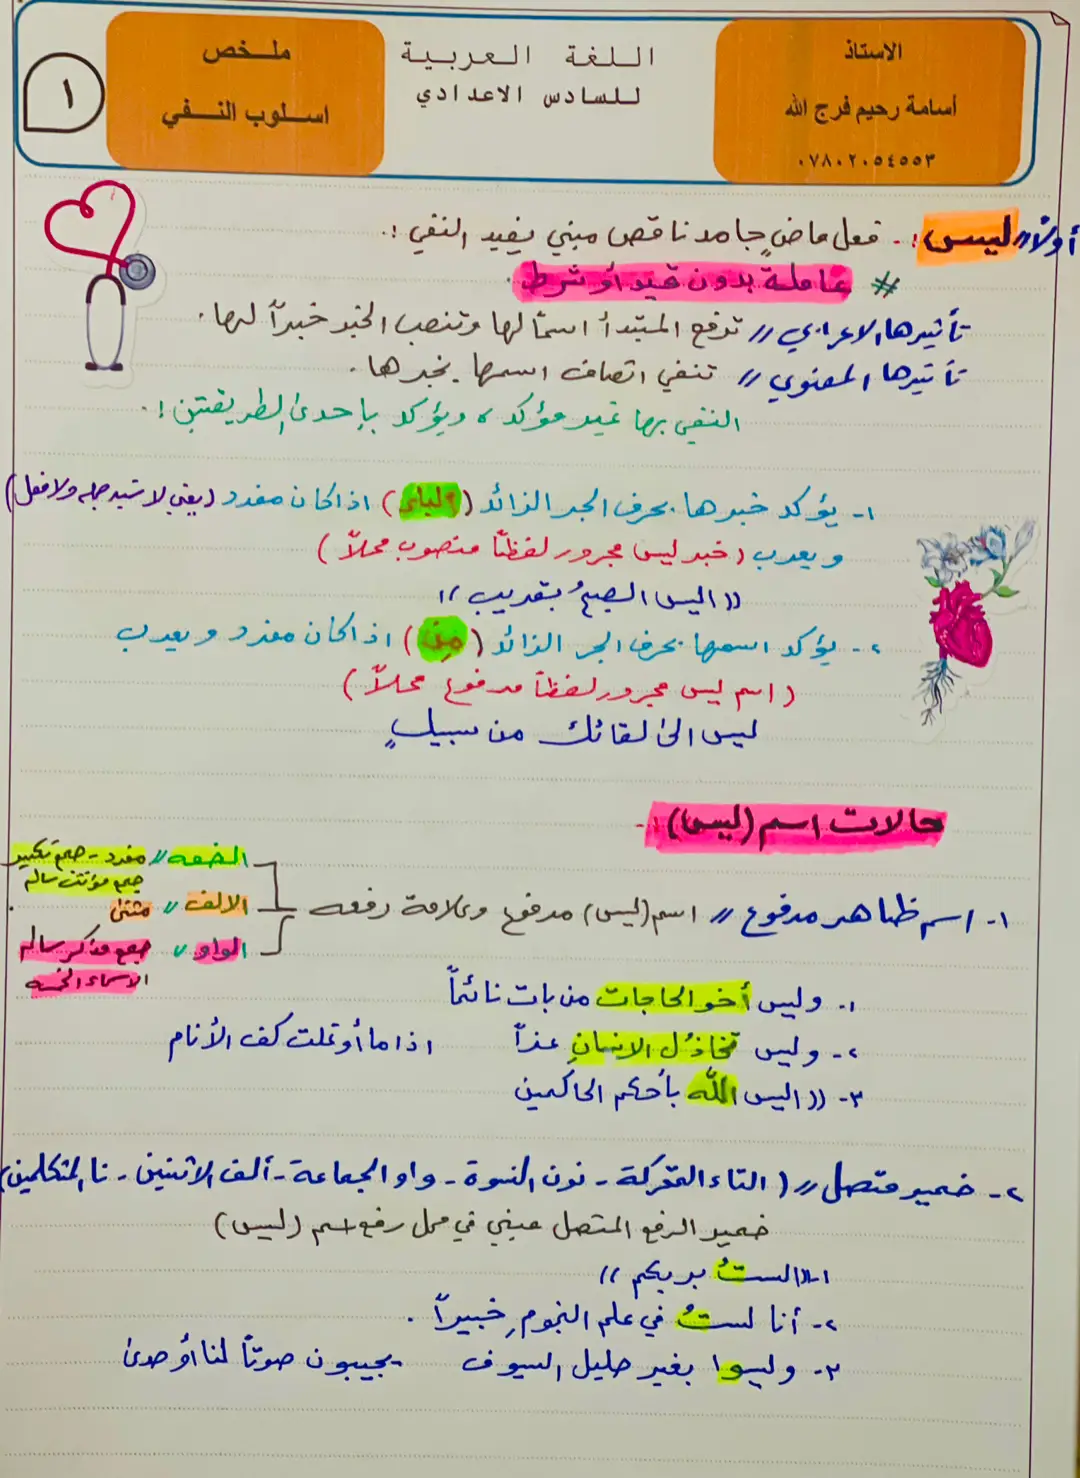 الاستاذ
أسامة رحيم فرج الله
٠٧٨٠٢٠٥٤٥٥٣
اللغة العربية
للسادس الاعدادي
ملخص
اسلوب النفي
١
أولاً// ليس :- فعل ماضٍ جامد ناقص مبني يفيد النفي :.
# عاملة بدون قيد أو شرط.
تأثيرها الاعرابي // ترفع المبتدأ اسمًا لها وتنصب الخبر خبراً لها.
تأثيرها المعنوي // تنفي اتصاف اسمها بخبرها.
النفي بها غير مؤكد، ويؤكد بإحدى الطريقتين :.
١- يؤكد خبرها بحرف الجر الزائد (الباء) اذا كان مفرد (يعني لا شبه جملة ولا فعل)
ويعرب (خبر ليس مجرور لفظاً منصوب محلاً)
(( اليس الصبحُ بقريب ))
٢- يؤكد اسمها بحرف الجر الزائد (من) اذا كان مفرد ويعرب
(اسم ليس مجرور لفظاً مرفوع محلاً)
ليس الى لقائك من سبيلٍ
حالات اسم (ليس) :-
١- اسم ظاهر مرفوع // اسم (ليس) مرفوع وعلامة رفعه
الضمه // مفرد - جمع تكسير
جمع مؤنث سالم
الالف // مثنى
الواو // جمع مذكر سالم
الاسماء الخمسه
١- وليس أخو الحاجات من بات نائماً
٢- وليس تخاذُل الانسانِ عذراً اذا ما أوغلت كف الأنام
٣- (( اليس الله بأحكم الحاكمين
٢- ضمير متصل // (التاء المتحركة - نون النسوة - واو الجماعة - ألف الاثنين - نا المتكلمين)
ضمير الرفع المتصل مبني في محل رفع اسم (ليس)
١- ((الستُ بربكم ))
٢- أنا لستُ في علم النجومِ خبيراً .
٣- وليسوا بغير صليل السيوف يجيبون صوتاً لنا أو صدى